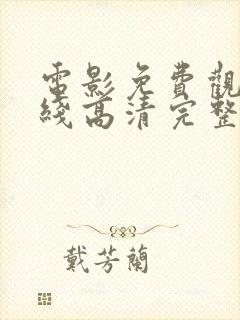 電影免費觀
綫高清完整
戴芳蘭